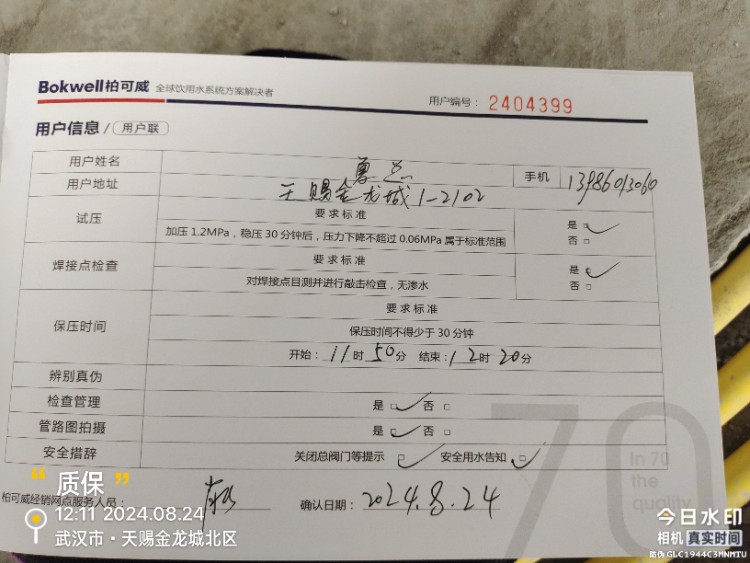 Bokwell柏可威 全球饮用水系统方案解决者
用户编号： 2404399
用户信息 / 用户联
用户姓名
手机 13986013060
用户地址 天赐金龙城1-2102
试压
要求标准
加压 1.2MPa，稳压 30 分钟后，压力下降不超过 0.06MPa 属于标准范围
是 □ ✓
否 □
焊接点检查
要求标准
对焊接点目测并进行敲击检查，无渗水
是 □ ✓
否 □
保压时间
要求标准
保压时间不得少于 30 分钟
开始： 11时 50分 结束： 12时 20分
辨别真伪
检查管理 是 □ ✓ 否 □
管路图拍摄 是 □ ✓ 否 □
安全措辞 关闭总阀门等提示 □ ✓ 安全用水告知 □ ✓
70
In 70
the
quality
“ 质保 ”
柏可威经销网点服务人员：
确认日期： 2024.8.24
12:11 2024.08.24
武汉市 · 天赐金龙城北区
今日水印
相机 真实时间
防伪 GLC1944C3MNMTU